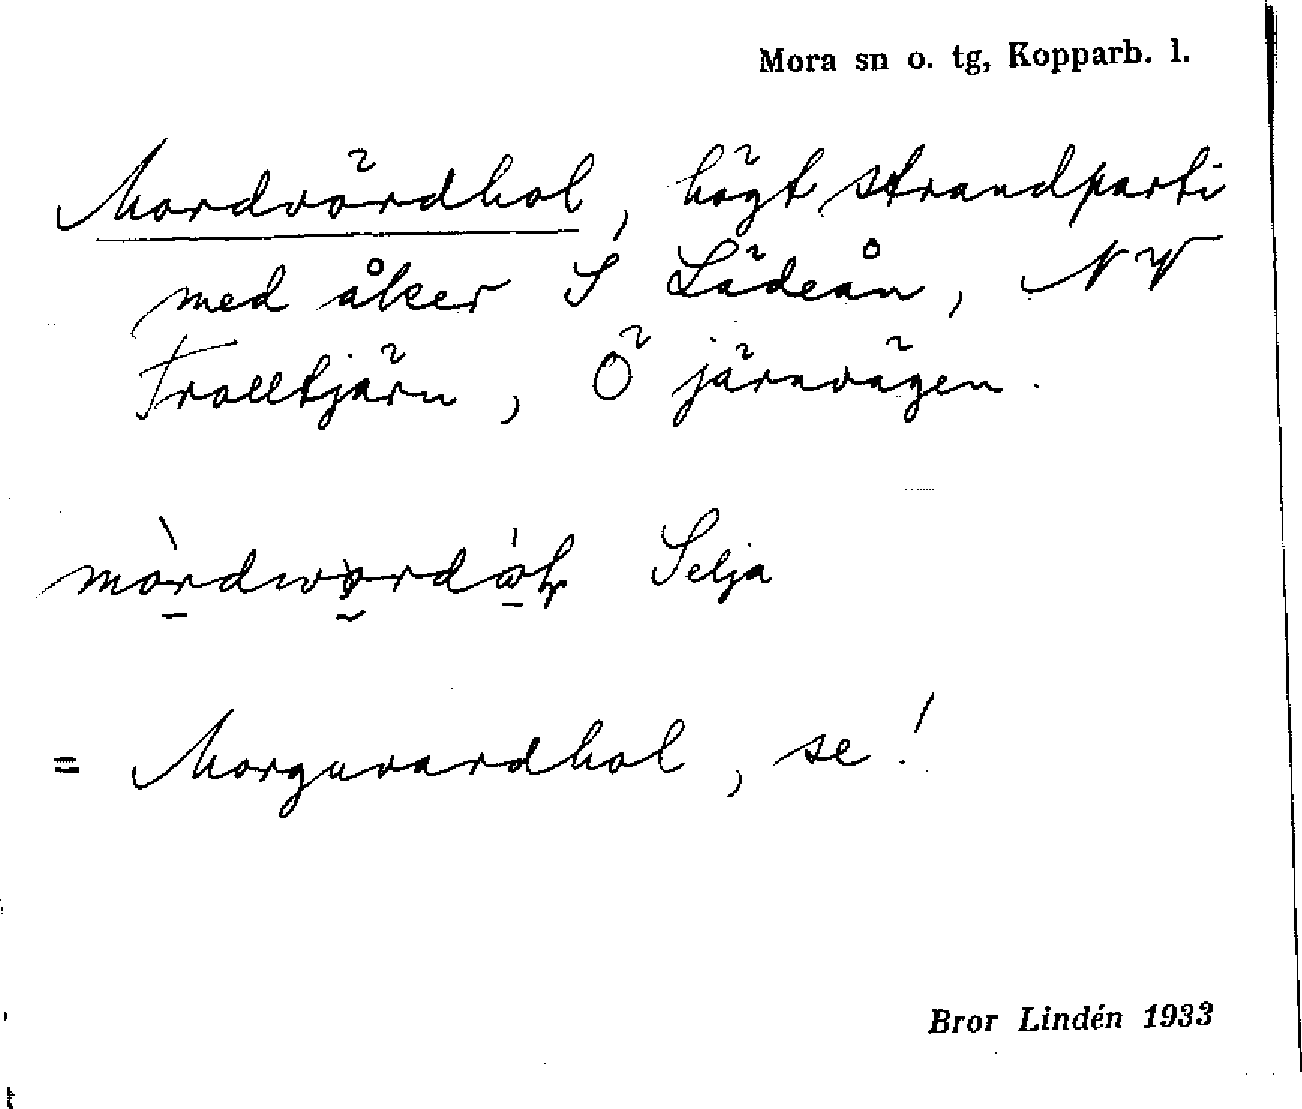 Mora sn o. tg, Kopparb. l.
Mordvördhol, högt strandparti
med åker S Lädeån, NV
Trolltjärn, Ö järnvägen.
Selja
= Morguvardhol, se!
Bror Lindén 1933